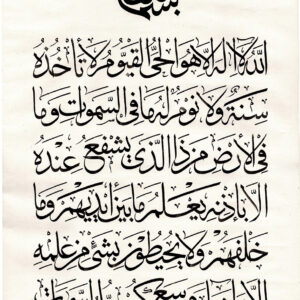 بسم
الله لا اله الا هو الحي القيوم لا تأخذه
سنة ولا نوم له ما في السموات وما
في الأرض من ذا الذي يشفع عنده
الا باذنه يعلم ما بين أيديهم وما
خلفهم ولا يحيطون بشئ من علمه
الا بما وسع